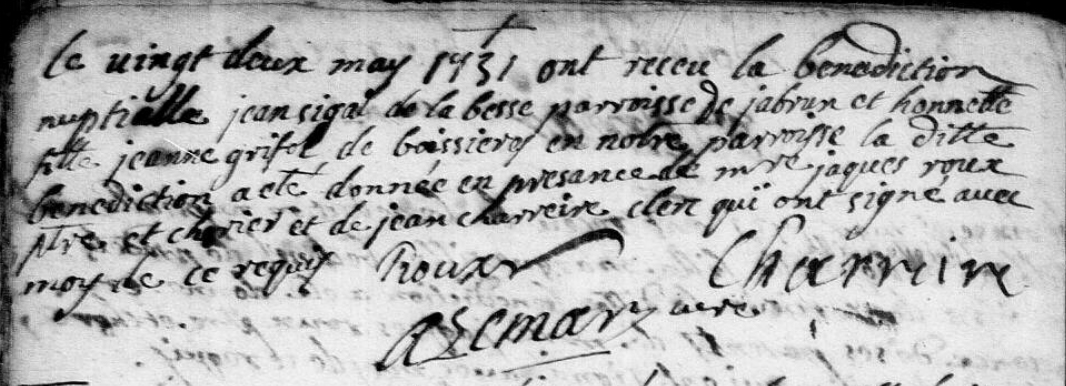 le vingt deux may 1731 ont receu la benediction
nuptialle jean sigal de la besse parroisse de jabrun et honnette
fille jeanne grifel de boissieres en notre parroisse la ditte
benediction a eté donnée en presance de mre jaques roux
ptre et et de jean charreire clerc qui ont signé avec
moy de ce requis Roux Charreire
Azemar